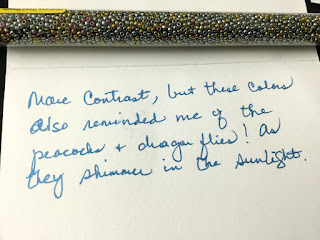 More Contrast, but these colors
also reminded me of the
peacocks + dragon flies! as
they shimmer in the sunlight.